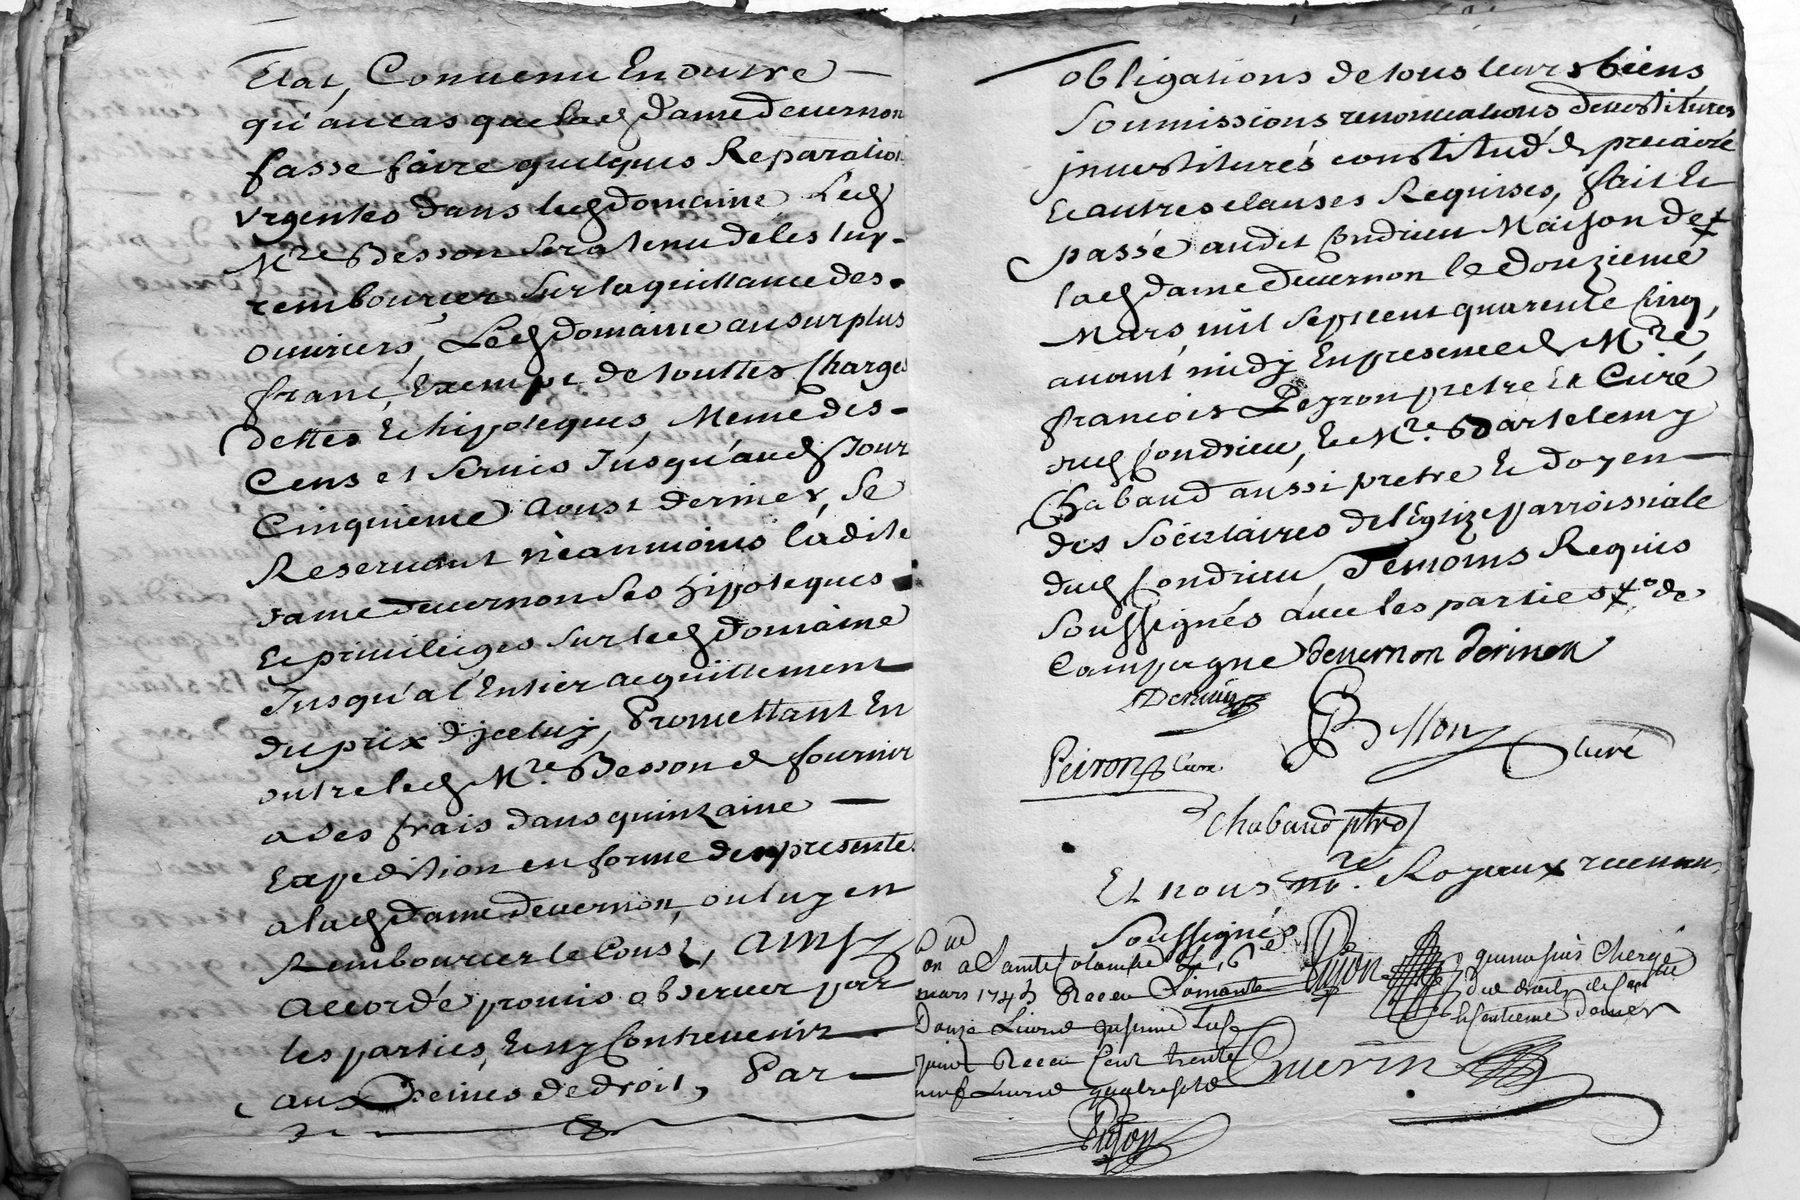 Etat, Conuenu En outre
qu'au cas que lad dame deuernon
fasse faire quelques Reparation
vrgentes dans led domaine Led
Mre Besson sera tenu de les luy
rembourcer sur la quittance des
ouuriers, Led domaine au surplus
franc, Exempt de touttes Charges
dettes Et hipoteques, Meme des
Cens et seruis Jusqu'aud Jour
Cinquieme Aoust dernier, se
Reseruant neanmoins ladite
dame deuernon ses hipoteques
Et priuileiges sur led domaine
Jusqu'a l'Entier acquittement
du prix d'jceluy, Promettant En
outre led Mre Besson de fournir
a ses frais dans quinzaine
Expedition en forme des presentes
a lad dame deuernon, ou luy en
Rembourcer le Coust, Ainsy
accordé promis obseruer par
les parties, Et ny Contreuenir
aux Peines de droit, Par
obligations de tous leurs biens
Soumissions renonciations deuestitures
jnuestitures constitud de precaire
Et autres clauses Requises, fait Et
passé audit Condrieu Maison de
lad dame deuernon le douzieme
Mars, mil sept cent quarente Cinq,
auant midj En presence de Mre
francois Peyron pretre Et Curé
dud Condrieu, Et Mre Bartelemy
Chabaud aussi pretre Et doyen
des Societaires de l'Eglize parroissiale
dud Condrieu, Temoins Requis
soussignés auec les parties de
Campagne deuernon derinon
Peiron Curé
Besson Curé
Chabaud ptre
Et nous Nre Royaux receuan
Soussigné
on a Sainte Colombe le 16e
mars 1745 Receu Soixante
Douze Liures
Receu Cent trente
neuf Liures quatre sols
Pijon
Guerin
Pijon